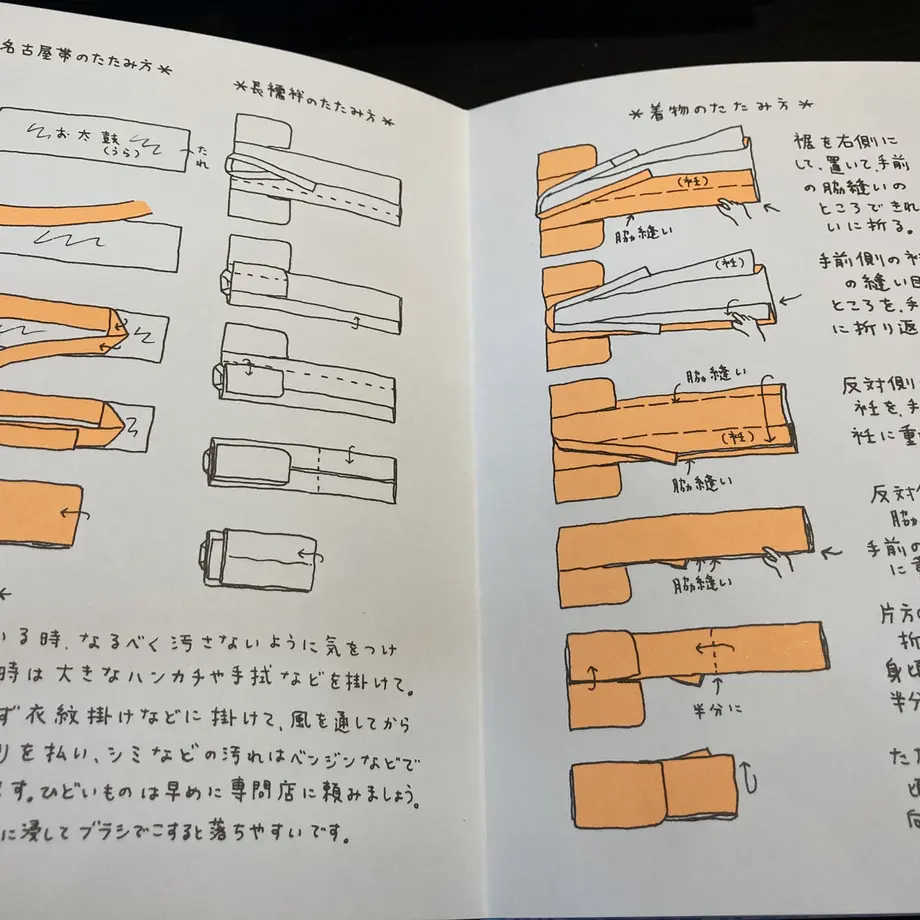 名古屋帯のたたみ方＊
お太鼓
(うら)
たれ
＊長襦袢のたたみ方＊
いる時、なるべく汚さないように気をつけ
時は大きなハンカチや手拭などを掛けて。
ず衣紋掛けなどに掛けて、風を通してから
リを払い、シミなどの汚れはベンジンなどで
ます。ひどいものは早めに専門店に頼みましょう。
に浸してブラシでこすると落ちやすいです。
＊着物のたたみ方＊
(衽)
脇縫い
裾を右側に
して、置いて、手前
の脇縫いの
ところできれ
いに折る。
(衽)
手前側の衽
の縫い目
ところを、手
に折り返
脇縫い
(衽)
脇縫い
反対側
衽を、手
衽に重
脇縫い
反対側
脇
手前の
に重
半分に
片方の
折
身頃
半分
たた